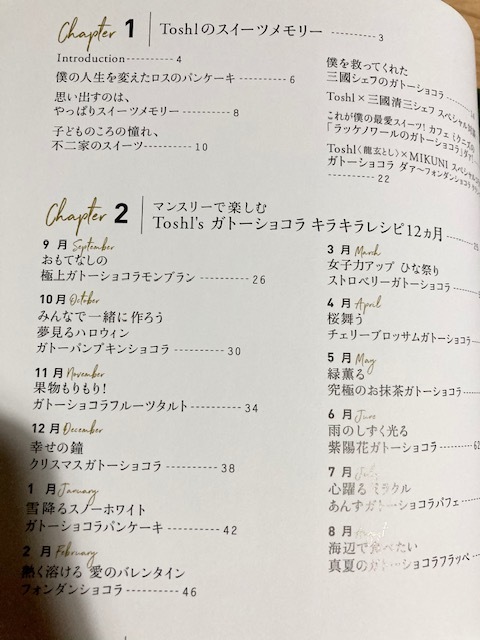 Chapter 1 Toshlのスイーツメモリー ---------- 3
Introduction---------- 4
僕の人生を変えたロスのパンケーキ ---------- 6
思い出すのは、
やっぱりスイーツメモリー---------- 8
子どものころの憧れ、
不二家のスイーツ---------- 10
僕を救ってくれた
三國シェフのガトーショコラ----------
Toshl×三國清三シェフ スペシャル対談
これが僕の最愛スイーツ! カフェ
「ラッケノワールのガトーショコラ」
Toshl〈龍玄とし〉×MIKUNI スペシャル
ガトーショコラ ダァ〜フォンダンショコラ
---------- 22
Chapter 2 マンスリーで楽しむ
Toshl's ガトーショコラ キラキラレシピ12ヵ月----------
9 月 September
おもてなしの
極上ガトーショコラモンブラン ---------- 26
10 月 October
みんなで一緒に作ろう
夢見るハロウィン
ガトーパンプキンショコラ ---------- 30
11 月 November
果物もりもり!
ガトーショコラフルーツタルト ---------- 34
12 月 December
幸せの鐘
クリスマスガトーショコラ ---------- 38
1 月 January
雪降るスノーホワイト
ガトーショコラパンケーキ ---------- 42
2 月 February
熱く溶ける 愛のバレンタイン
フォンダンショコラ ---------- 46
3 月 March
女子力アップ ひな祭り
ストロベリーガトーショコラ----------
4 月 April
桜舞う
チェリーブロッサムガトーショコラ----------
5 月 May
緑薫る
究極のお抹茶ガトーショコラ----------
6 月 June
雨のしずく光る
紫陽花ガトーショコラ---------- 62
7 月 July
心躍るミラクル
あんずガトーショコラパフェ ----------
8 月
海辺で食べたい
真夏のガトーショコラフラッペ ----------